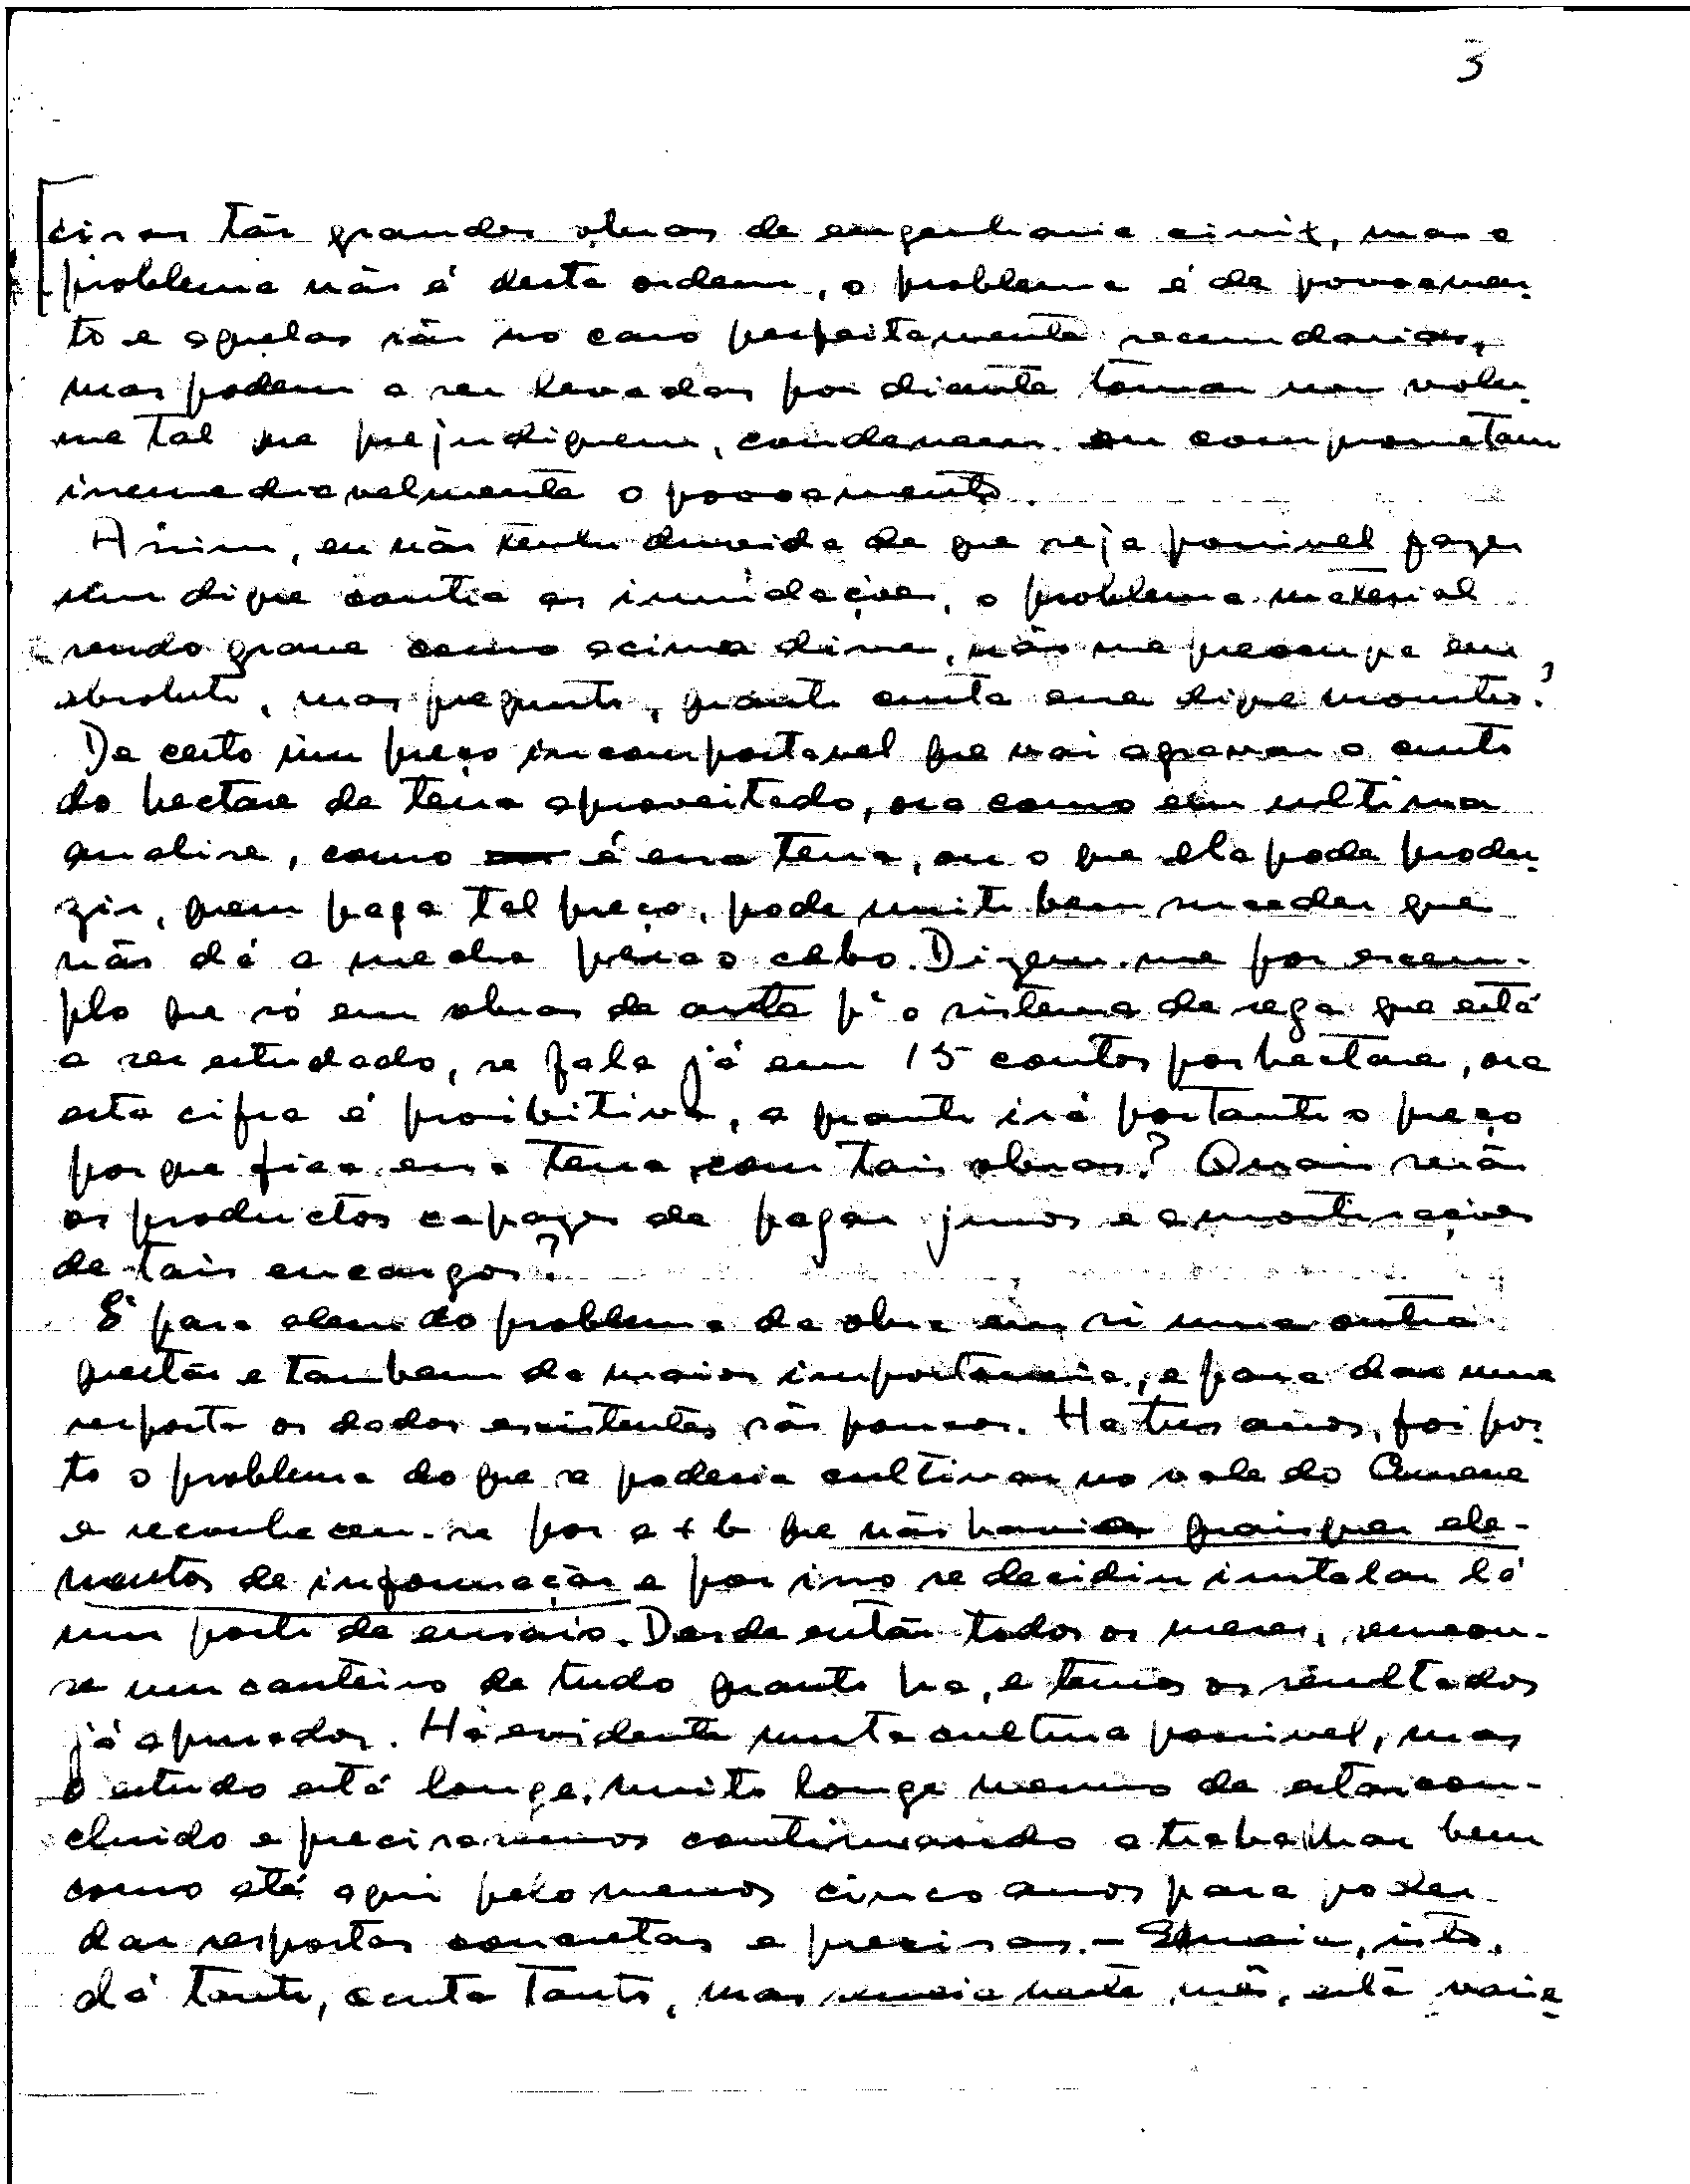 3
cisas tão grandes obras de engenharia civil, mas o
problema não é desta ordem, o problema é de povoamen-
to e aquelas são no caso perfeitamente secundarias,
mas podem a ser levadas por diante tomar um volu-
me tal que prejudiquem, condenem ou comprometam
irremediavelmente o povoamento.
Assim, eu não tenho duvida de que seja possivel fazer
um dique contra as inundações, o problema material
sendo grave como acima disse, não me preocupa em
absoluto, mas pregunto, quanto custa esse dique monstro?
De certo um preço incomportavel que vai agravar o custo
do hectare de terra aproveitado, ora como em ultima
analise, como é essa terra, ou o que ela pode produ-
zir, quem paga tal preço, pode muito bem suceder que
não dá a mecha para o cebo. Dizem-me por exem-
plo que só em obras de arte pª o sistema de rega que está
a ser estudado, se fala já em 15 contos por hectare, ora
esta cifra é proibitiva, a quanto irá portanto o preço
por que fica essa terra com tais obras? Quais serão
os productos capazes de pagar juros e amortisações
de tais encargos?
É para alem do problema da obra em si uma outra
questão e tambem da maior importancia, e para dar uma
resposta os dados existentes são poucos. Ha tres anos, foi pos-
to o problema do que se poderia cultivar no vale do Cunene
e reconheceu-se por a + b que não havia quaisquer ele-
mentos de informação e por isso se decidiu instalar lá
um posto de ensaio. Desde então todos os meses, semeou-
se um canteiro de tudo quanto ha, e temos os resultados
já apurados. Há evidente muita cultura possivel, mas
o estudo está longe, muito longe mesmo de estar con-
cluido e precisaremos continuando a trabalhar bem
como até aqui pelo menos cinco anos para poder
dar respostas concretas e precisas. - Semeia, isto,
dá tanto, custa tanto, mas semeia neste mês, esta varie-